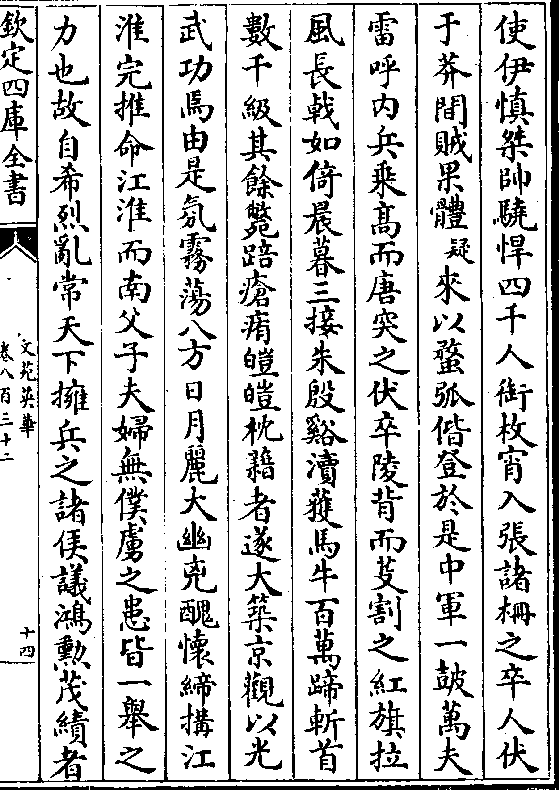 使伊慎桀帥驍悍四千人銜枚宵入張諸柵之卒人伏
于莽間賊果體疑來以蝥弧偕登於是中軍一鼓萬夫
雷呼内兵乘髙而唐突之伏卒陵背而芟割之紅旗拉
風長㦸如倚晨暮三接朱殷谿瀆獲馬牛百萬蹄斬首
數千級其餘斃踣瘡痏皚皚枕籍者遂大築京觀以光
武功焉由是氛霧蕩八方日月麗大幽兇醜懐締搆江
淮完推命江淮而南父子夫婦無僕虜之患皆一舉之
力也故自希烈亂常天下擁兵之諸侯議鴻勲茂績者
欽定四庫全書
文苑英華
卷八百三十二
十四